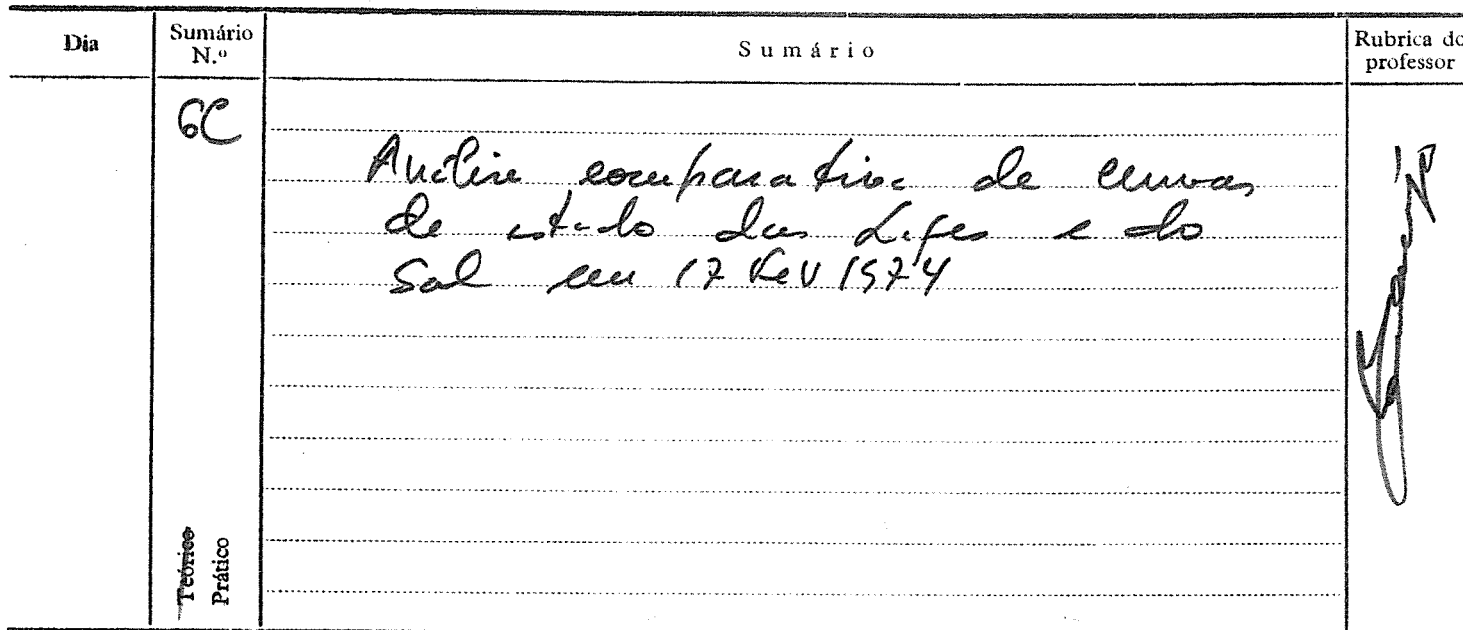 Dia
Sumário N.º
Sumário
Rubrica do professor
6C
Análise comparativa de curvas
de estado das Lajes e do
Sal em 17 Fev 1974
Teórico
Prático